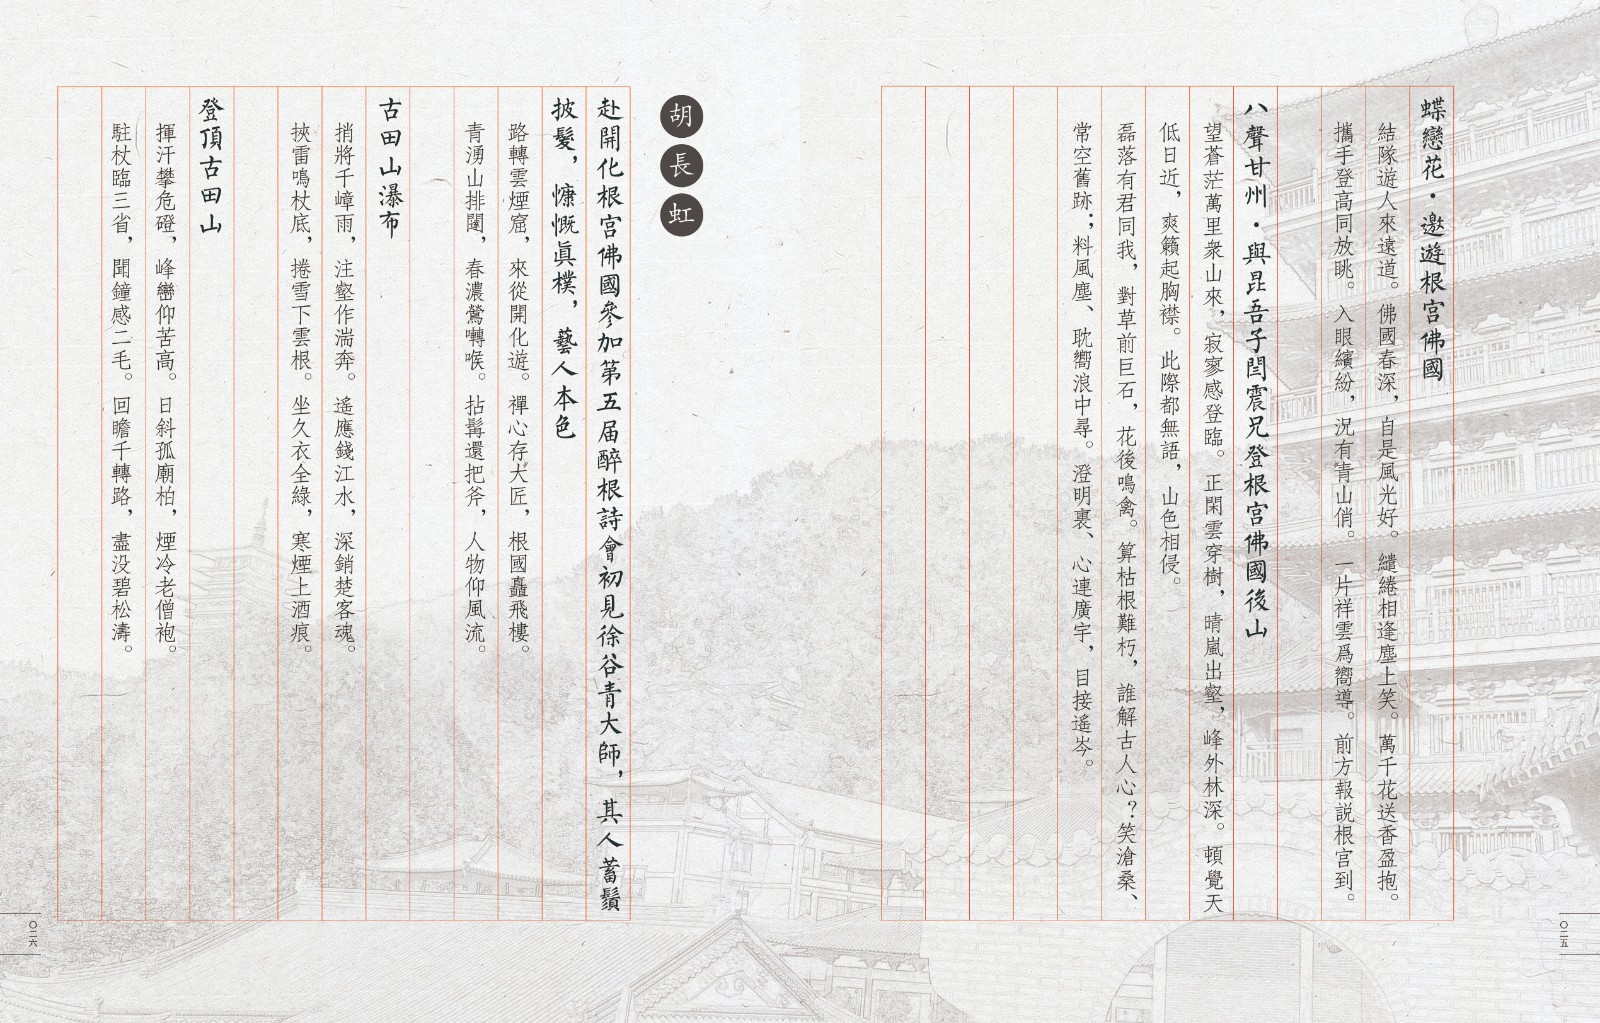 蝶戀花・邀遊根宮佛國
結隊遊人來遠道。佛國春深，自是風光好。繾綣相逢塵上笑。萬千花送香盈抱。
攜手登高同放眺。入眼繽紛，況有青山俏。一片祥雲爲嚮導。前方報説根宮到。
八聲甘州・與昆吾子閆震兄登根宮佛國後山
望蒼茫萬里衆山來，寂寥感登臨。正閑雲穿樹，晴嵐出壑，峰外林深。頓覺天
低日近，爽籟起胸襟。此際都無語，山色相侵。
磊落有君同我，對草前巨石，花後鳴禽。算枯根難朽，誰解古人心？笑滄桑、
常空舊跡；料風塵、耽嚮浪中尋。澄明裏、心連廣宇，目接遙岑。
〇二五
胡長虹
赴開化根宮佛國參加第五届醉根詩會初見徐谷青大師，其人蓄鬚
披髮，慷慨眞樸，藝人本色
路轉雲煙窟，來從開化遊。禪心存大匠，根國矗飛樓。
青湧山排闥，春濃鶯囀喉。拈髯還把斧，人物仰風流。
古田山瀑布
捎將千嶂雨，注壑作湍奔。遙應錢江水，深銷楚客魂。
挾雷鳴杖底，捲雪下雲根。坐久衣全綠，寒煙上酒痕。
登頂古田山
揮汗攀危磴，峰巒仰苦高。日斜孤廟柏，煙冷老僧袍。
駐杖臨三省，聞鐘感二毛。回瞻千轉路，盡没碧松濤。
〇二六